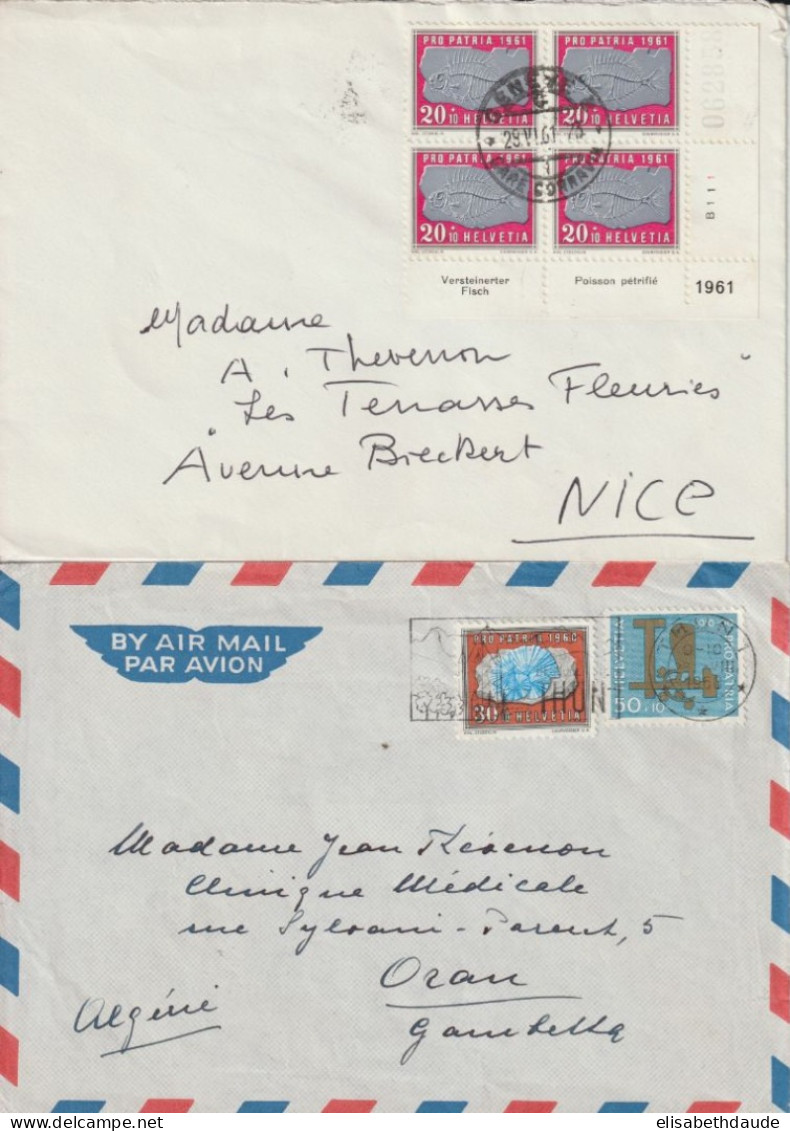 PRO PATRIA 1961
20+10 HELVETIA
PRO PATRIA 1961
20+10 HELVETIA
062858
PRO PATRIA 1961
20+10 HELVETIA
PRO PATRIA 1961
20+10 HELVETIA
B111
GENÈVE
29.VI.61
GARE CORNAVIN
Versteinerter
Fisch
Poisson pétrifié
1961
Madame
A. Thevenon
"Les Terrasses Fleuries"
Avenue Bieckert
NICE
BY AIR MAIL
PAR AVION
PRO PATRIA 1960
30 HELVETIA
THUN
HELVETIA
PRO PATRIA
50+10
Madame Jean Kévenon
Clinique Médicale
rue Sylvani-Parent, 5
Oran
Algérie
Gambetta
elisabethdaude